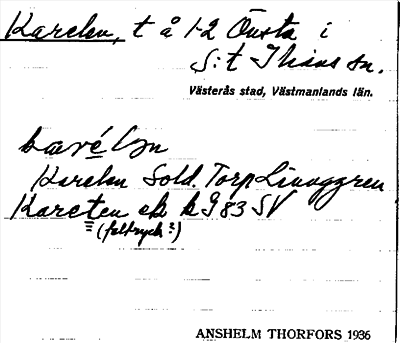 Karelen, t å 1-2 Önsta i
S:t Ilians sn.
Västerås stad, Västmanlands län.
Karelen Sold. Torp Linaggren
Karcten ek bl 983 SV
(feltryck?)
ANSHELM THORFORS 1936